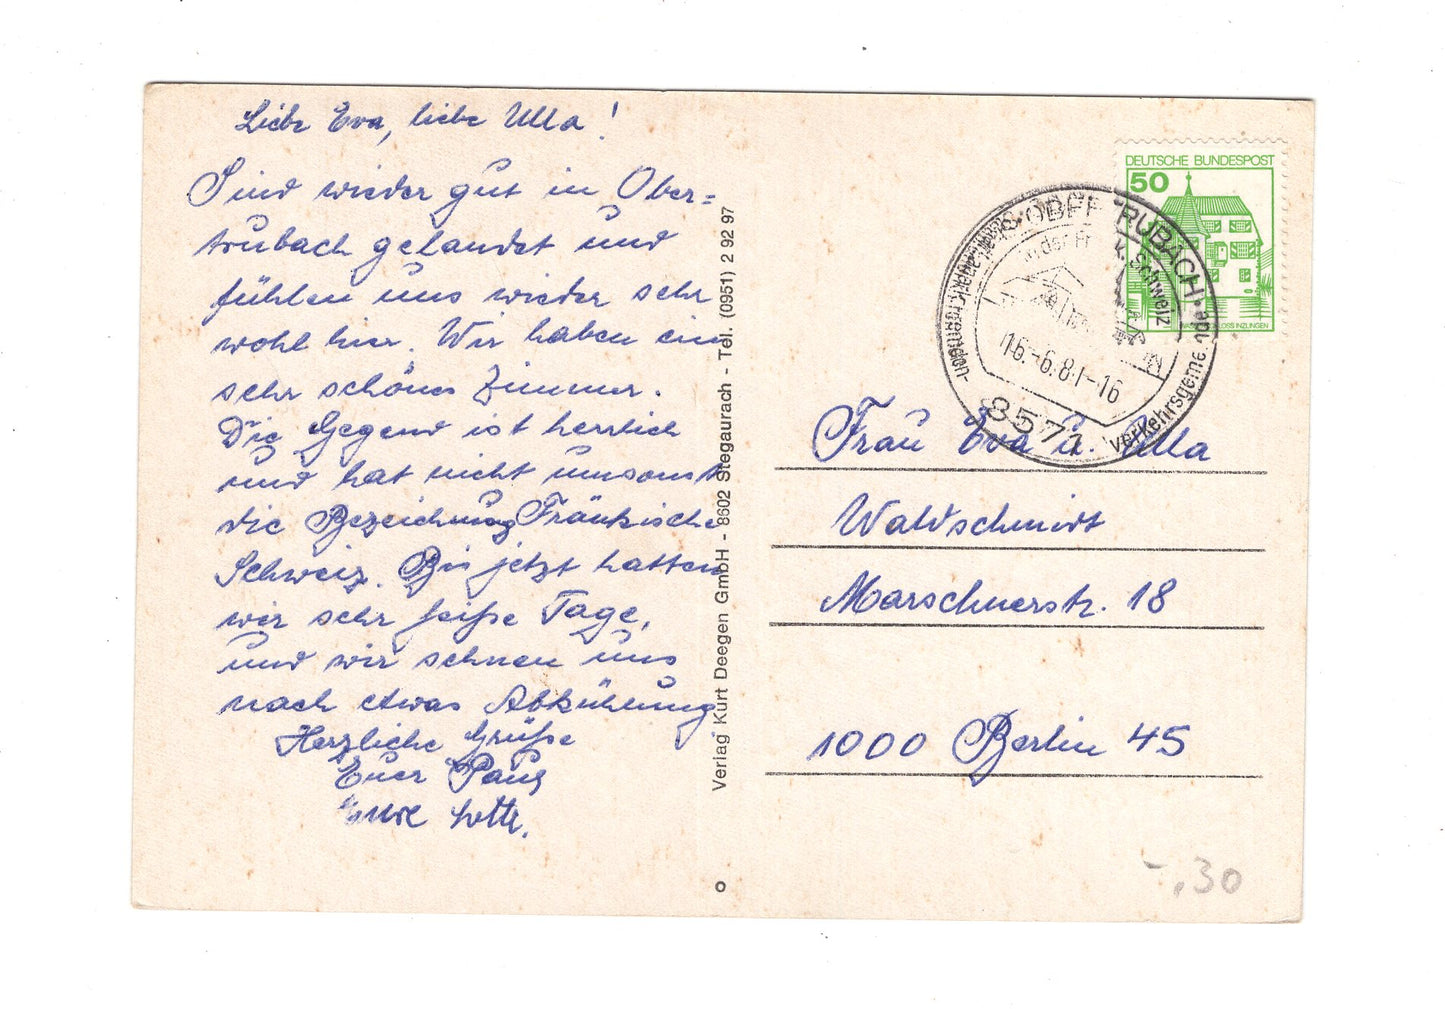 Liebe Eva, liebe Ulla!
Sind wieder gut in Ober=
trubach gelandet und
fühlen uns wieder sehr
wohl hier. Wir haben ein
sehr schönes Zimmer.
Die Gegend ist herrlich
und hat nicht umsonst
die Bezeichnung Fränkische
Schweiz. Bis jetzt hatten
wir sehr heiße Tage,
und wir sehnen uns
nach etwas Abkühlung
Herzliche Grüße
Euer Paul
Eure Lotte.
Verlag Kurt Deegen GmbH - 8602 Stegaurach - Tel. (0951) 2 92 97
DEUTSCHE BUNDESPOST
50
WASSERSCHLOSS INZLINGEN
OBERTRUBACH
in der Fr. Schweiz
16.-6.81-16
8571
Verkehrsgemeinde
Frau Eva u. Ulla
Waldschmidt
Marschnerstr. 18
1000 Berlin 45
-,30